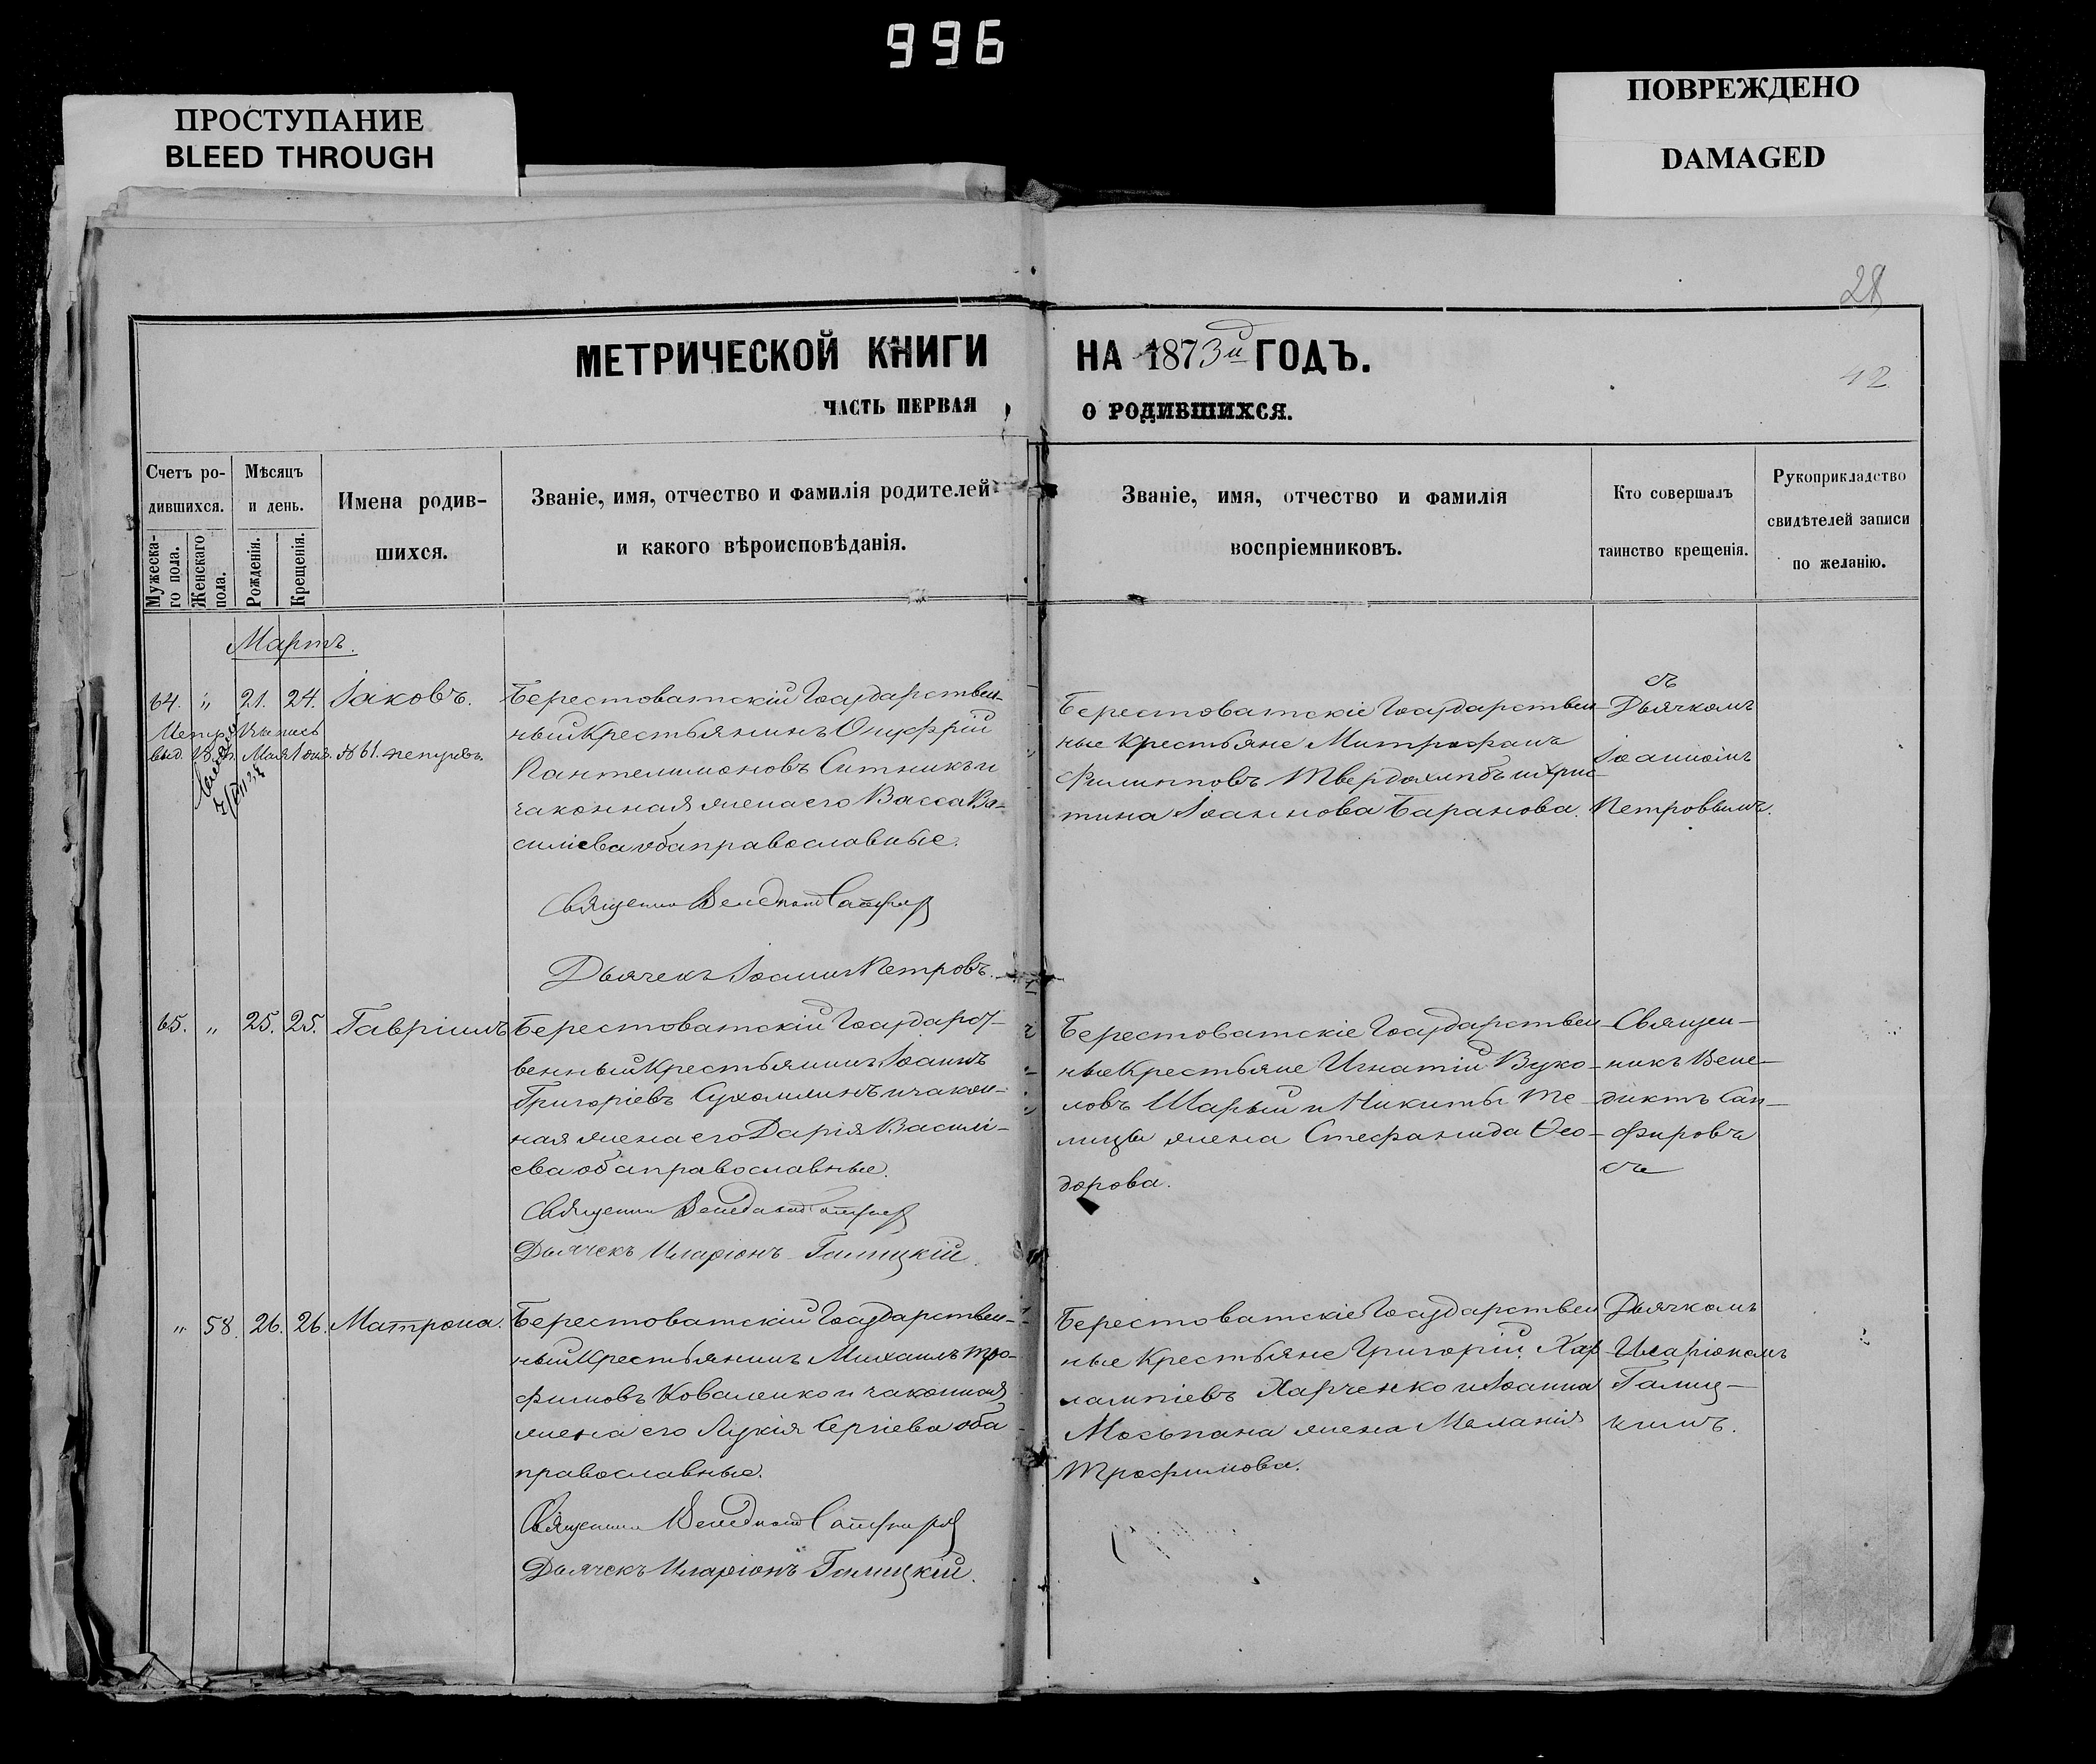 996
ПРОСТУПАНИЕ
BLEED THROUGH
ПОВРЕЖДЕНО
DAMAGED
28
42
МЕТРИЧЕСКОЙ КНИГИ НА 1873й ГОДЪ.
ЧАСТЬ ПЕРВАЯ, О РОДИВШИХСЯ.
Счетъ ро-
дившихся.
Мужеска-
го пола.
Женскаго
пола.
Мѣсяцъ
и день.
Рожденія.
Крещенія.
Имена родив-
шихся.
Званіе, имя, отчество и фамилія родителей
и какого вѣроисповѣданія.
Званіе, имя, отчество и фамилія
воспріемниковъ.
Кто совершалъ
таинство крещенія.
Рукоприкладство
свидѣтелей записи
по желанію.
Мартъ.
64. " 21. 24. Іаковъ.
Метр. Выпись
выд. Мая 1 дня. № 61.
Берестоватскій Государствен-
ный Крестьянинъ Онуфрій
Пантелимоновъ Ситникъ и
законная жена его Васса Ва-
силіева оба православные.
Священникъ Венедиктъ Сапфировъ
Дьячекъ Іоаннъ Петровъ.
Берестоватскіе Государствен-
ные Крестьяне Митрофанъ
Филипповъ Твердохлѣбъ и Хрис-
тина Іоаннова Баранова.
съ
Дьячкомъ
Іоанномъ
Петровымъ.
65. " 25. 25. Гавріилъ
Берестоватскій Государст-
венный Крестьянинъ Іоаннъ
Григоріевъ Сухомлинъ и закон-
ная жена его Дарія Василі-
ева оба православные.
Священникъ Венедиктъ Сапфировъ
Дьячекъ Иларіонъ Галицкій.
Берестоватскіе Государствен-
ные Крестьяне Игнатій Вуко-
ловъ Шарый и Никиты Те-
лицы жена Стефанида Ѳео-
дорова.
Священ-
никъ Вене-
диктъ Сап-
фировъ
съ
" 58. 26. 26. Матрона.
Берестоватскій Государствен-
ный Крестьянинъ Михаилъ Тро-
фимовъ Коваленко и законная
жена его Лукія Сергіева оба
православные.
Священникъ Венедиктъ Сапфировъ
Дьячекъ Иларіонъ Галицкій.
Берестоватскіе Государствен
ные Крестьяне Григорій Хар-
лампіевъ Харченко и Іоанна
Мосьпана жена Меланія
Трофимова.
Дьячкомъ
Иларіономъ
Галиц-
кимъ.